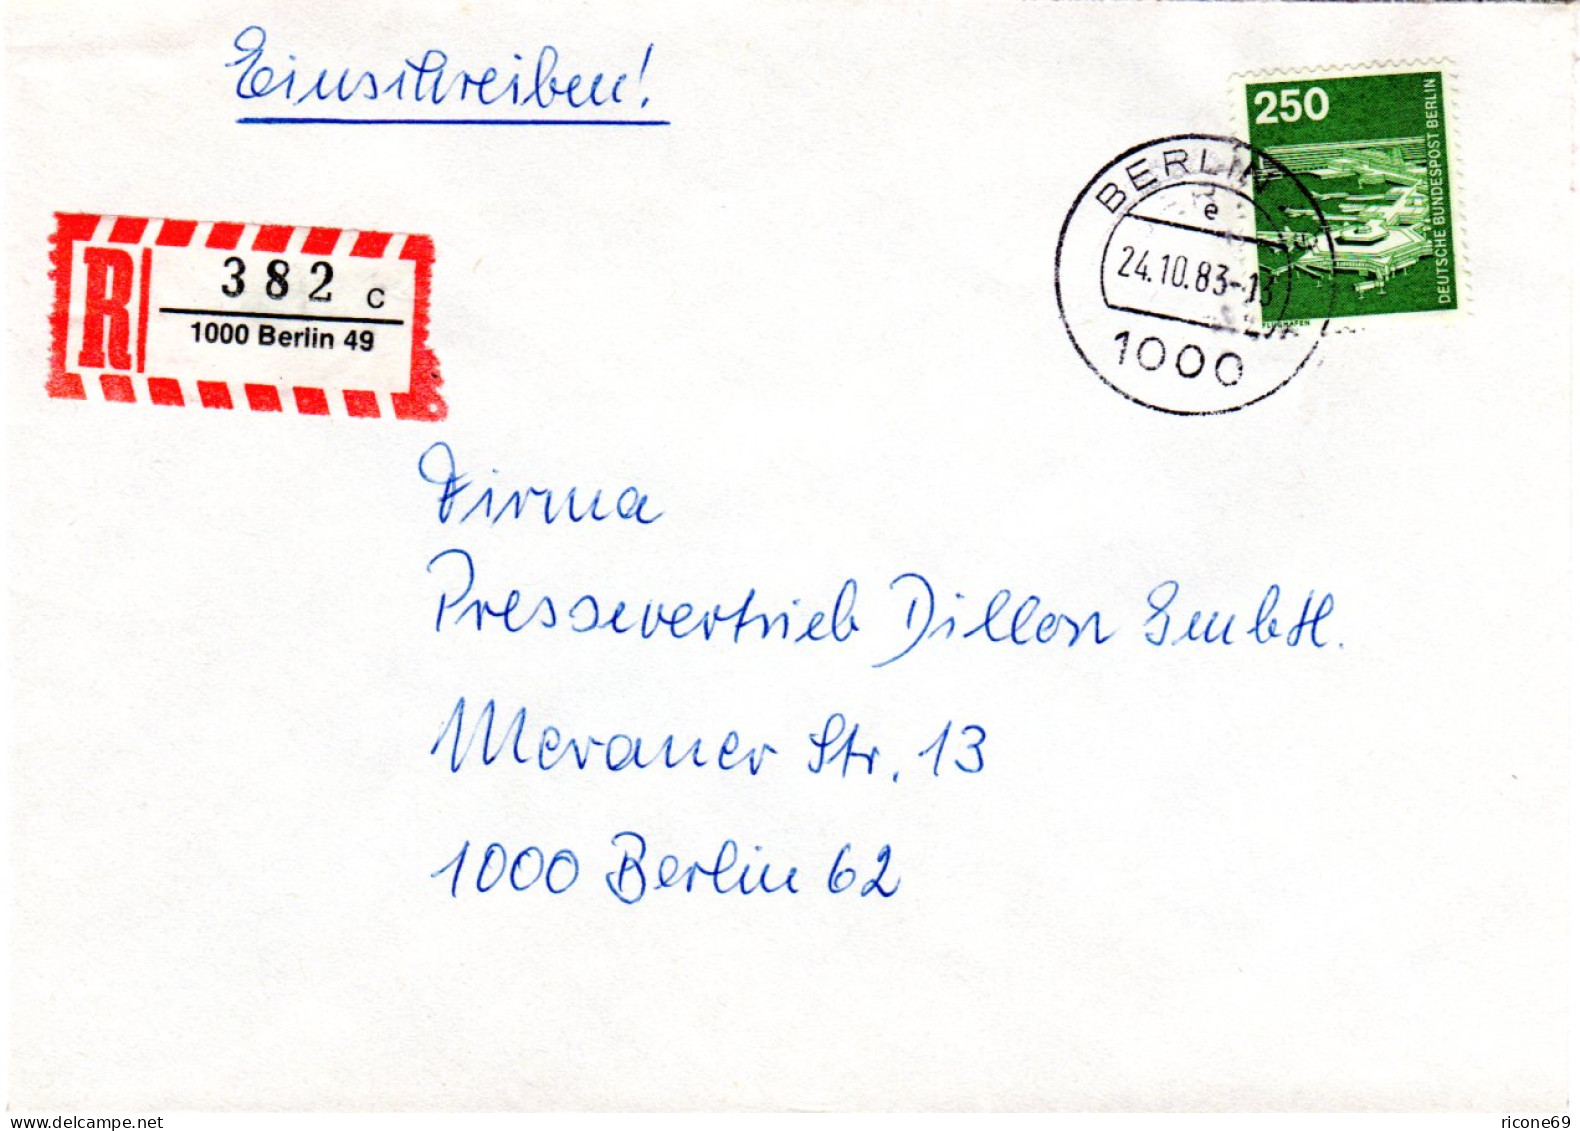 Einschreiben!
250
DEUTSCHE BUNDESPOST BERLIN
FLUGHAFEN
BERLIN
e
24.10.83-13
1000
R
382 c
1000 Berlin 49
Firma
Pressevertrieb Dillon GmbH.
Meraner Str. 13
1000 Berlin 62
www.delcampe.net
ricone69